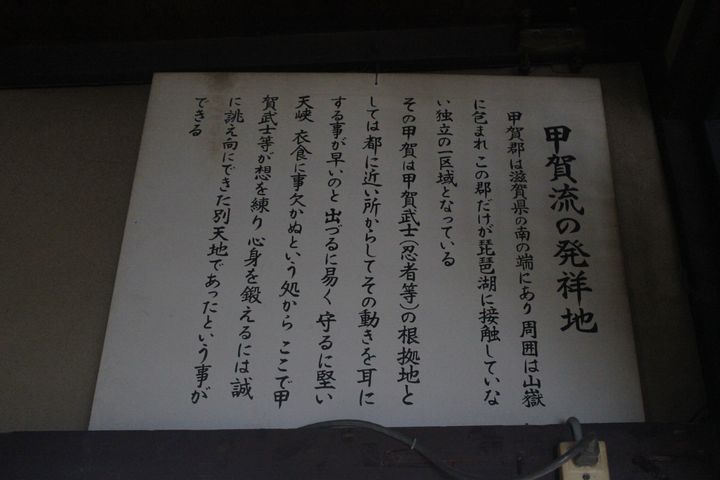 甲賀流の発祥地
甲賀郡は滋賀県の南の端にあり 周囲は山嶽
に包まれ この郡だけが琵琶湖に接触していな
い独立の一区域となっている
その甲賀は甲賀武士(忍者等)の根拠地と
しては都に近い所からしてその動きを耳に
する事が早いのと 出づるに易く 守るに堅い
天峡 衣食に事欠かぬという処から ここで甲
賀武士等が想を練り 心身を鍛えるには誠
に誂え向にできた別天地であったという事が
できる